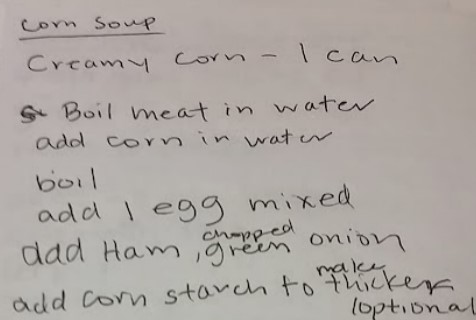 Corn Soup
Creamy corn - 1 can
Boil meat in water
add corn in water
boil
add 1 egg mixed
add Ham, chopped green onion
add corn starch to make thicker
(optional